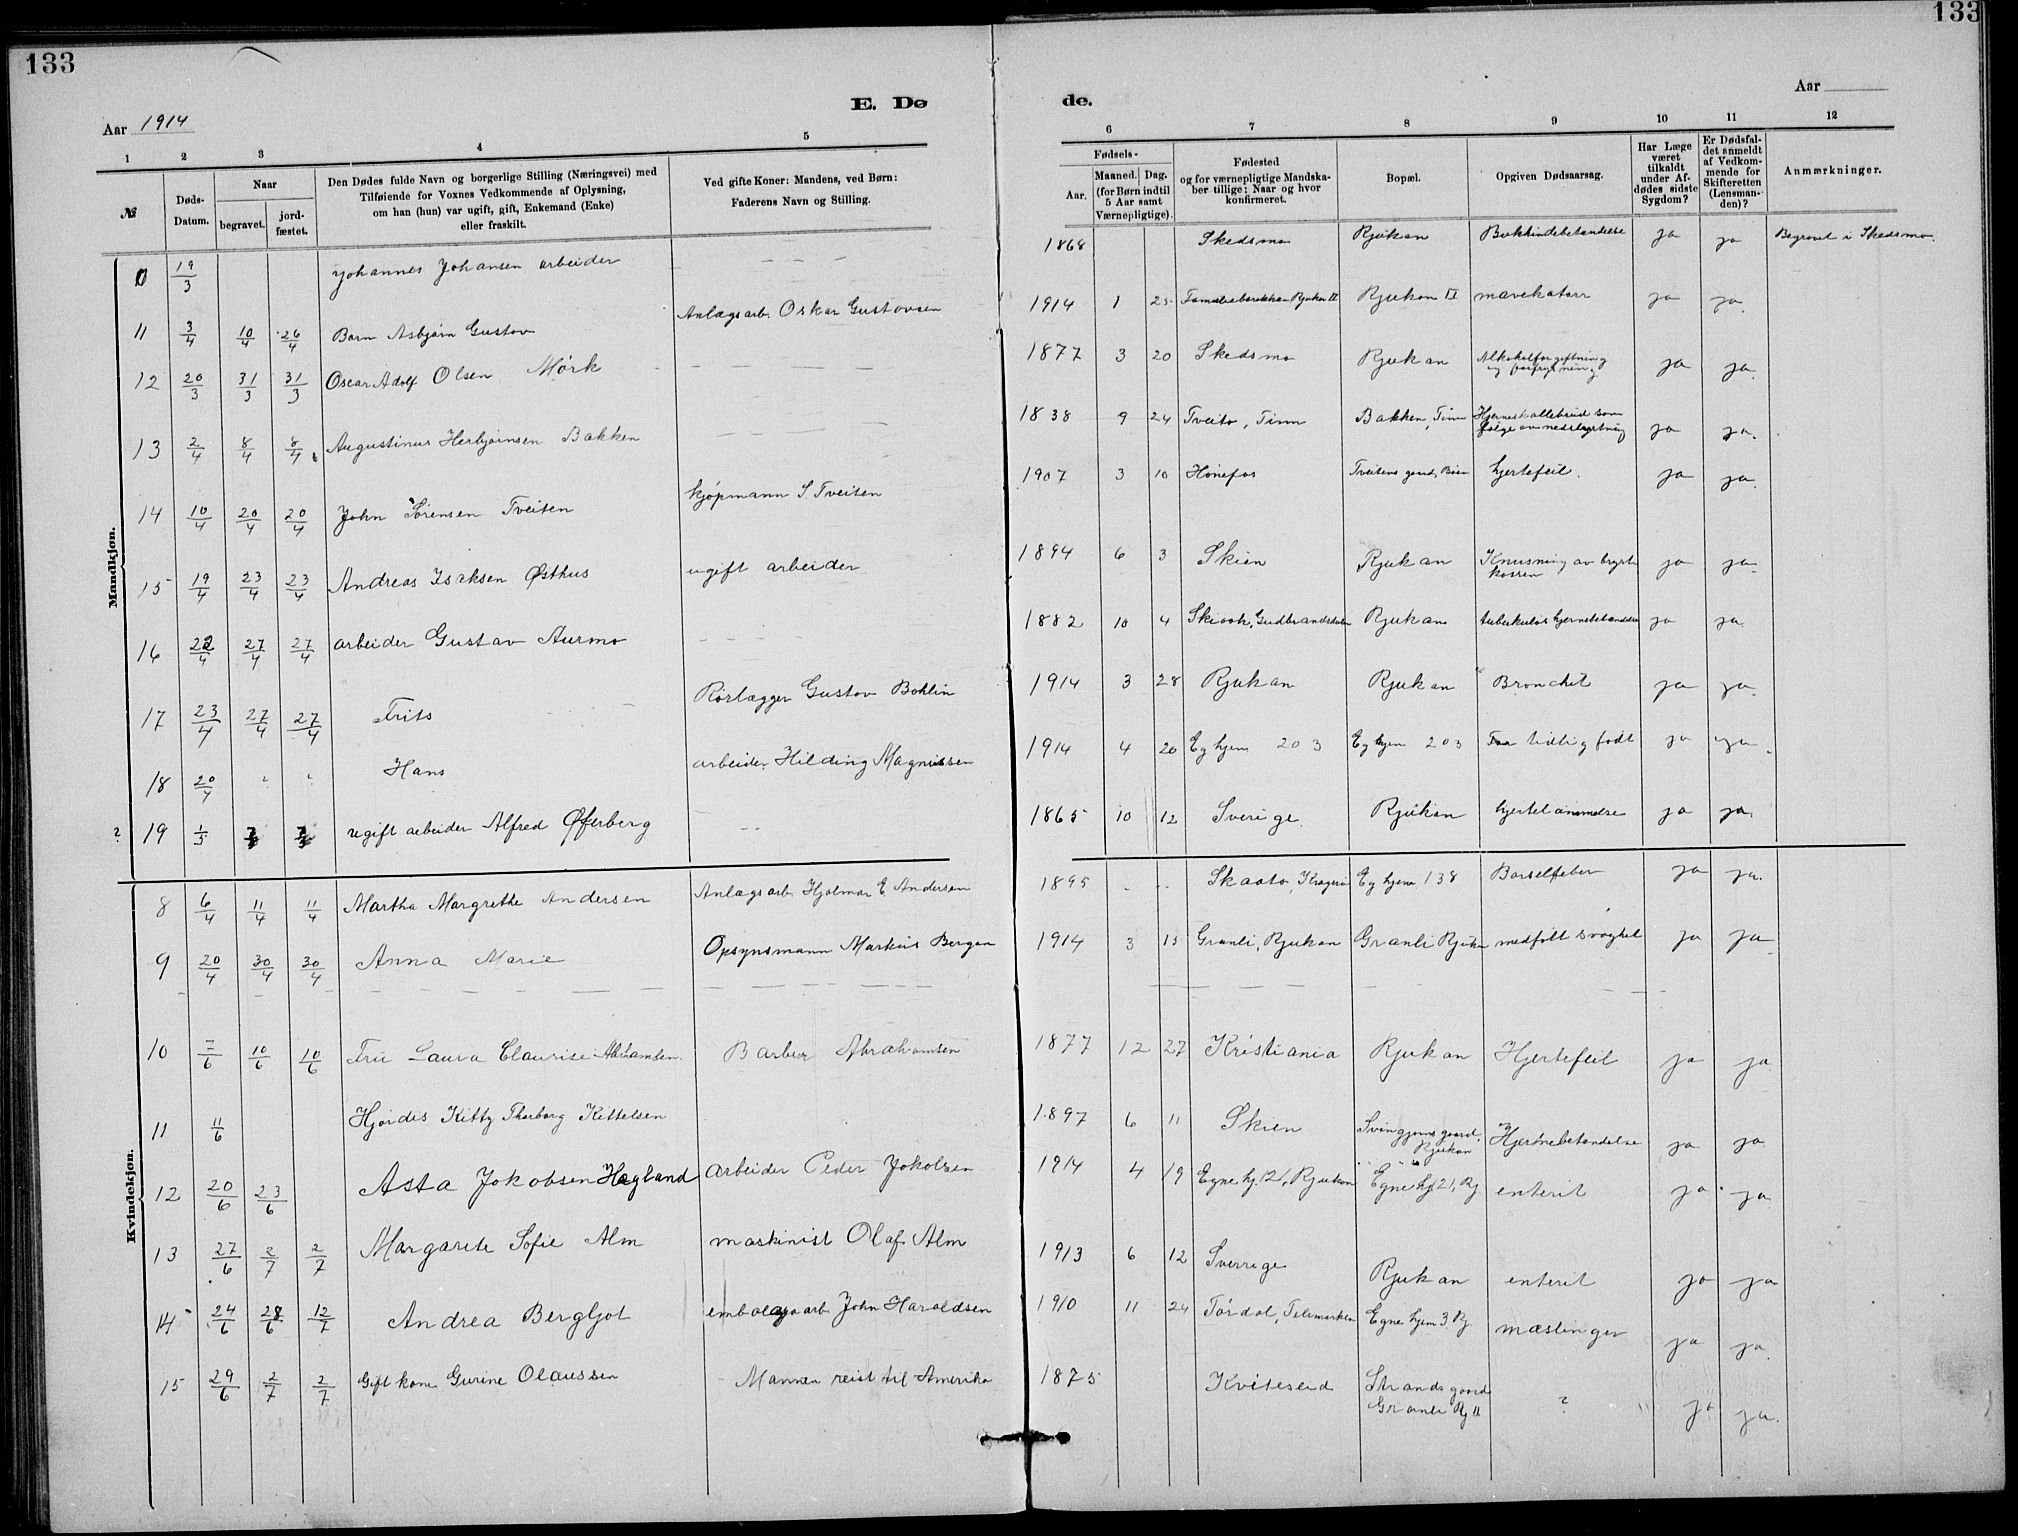 133
133
E. Dø
de.
Aar 1914
Aar
1 2 3 4 5
6 7 8 9 10 11 12
№ Døds-Datum. Naar begravet. jord-fæstet. Den Dødes fulde Navn og borgerlige Stilling (Næringsvei) med Tilføiende for Voxnes Vedkommende af Oplysning, om han (hun) var ugift, gift, Enkemand (Enke) eller fraskilt. Ved gifte Koner: Mandens, ved Børn: Faderens Navn og Stilling.
Fødsels- Aar. Maaned. Dag. (for Børn indtil 5 Aar samt Værnepligtige). Fødested og for værnepligtige Mandskaber tillige: Naar og hvor konfirmeret. Bopæl. Opgiven Dødsaarsag. Har Læge været tilkaldt under Afdødes sidste Sygdom? Er Dødsfaldet anmeldt af Vedkommende for Skifteretten (Lensmanden)? Anmærkninger.
Mandkjøn.
0 19/3 Johannes Johansen arbeider 1868 Skedsmo Rjukan Bukhindebetændelse ja ja Begravet i Skedsmo.
11 3/4 10/4 26/4 Barn Asbjørn Gustav Anlægsarb. Oskar Gustavsen 1914 1 25 Rjukan II Rjukan II mavekatarr ja ja.
12 20/3 31/3 31/3 Oscar Adolf Olsen Mørk 1877 3 20 Skedsmo Rjukan Alkoholforgiftning og forfrysning ja ja.
13 2/4 8/4 8/4 Augustinus Herbjørnsen Bakken 1838 9 24 Tveito, Tinn Bakken, Tinn Hjerneskallebrud som følge av nedstyrtning ja ja.
14 10/4 20/4 20/4 John Sørensen Tveiten kjøpmann S. Tveiten 1907 3 10 Hønefos Tveitens gaard, Bøen hjertefeil. ja ja.
15 19/4 23/4 23/4 Andreas Isaksen Østhus ugift arbeider 1894 6 3 Skien Rjukan Knusning av brystkassen ja ja
16 22/4 27/4 27/4 arbeider Gustav Aurmo 1882 10 4 Skiaak, Gudbrandsdalen Rjukan tuberkuløs hjernebetændelse ja ja.
17 23/4 27/4 27/4 Frits Rørlægger Gustav Bohlin 1914 3 28 Rjukan Rjukan Bronchit ja ja.
18 20/4 " " Hans arbeider Hilding Magnussen 1914 4 20 Eg hjem 203 Eg hjem 203 For tidlig født ja ja.
? 19 1/5 ugift arbeider Alfred Øfterberg 1865 10 12 Sverige. Rjukan hjertelammelse ja ja.
Kvindekjøn.
8 6/4 11/4 11/4 Martha Margrethe Andersen Anlægsarb. Hjalmar E Andersen 1895 Skaatø, Kragerø Eg hjem 138 Barselfeber ja ja.
9 20/4 30/4 30/4 Anna Marie Opsynsmann Markus Bergan 1914 3 15 Granli, Rjukan Granli Rjukan medfødt svaghet ja ja
10 7/6 10/6 10/6 Fru Laura Claurise Abrahamsen. Barber Abrahamsen 1877 12 27 Kristiania Rjukan Hjertefeil ja ja
11 11/6 Hjørdis Kitty Tharborg Kittelsen 1897 6 11 Skien gaard, Rjukan Hjernebetændelse ja ja
12 20/6 23/6 Asta Jokobsen Hægland arbeider Peder Jokobsen 1914 4 19 Egne hj. 121, Rjukan Egne hj 21, Rj. enterit ja ja
13 27/6 2/7 2/7 Margarete Sofie Alm maskinist Olaf Alm 1913 6 12 Sverrige Rjukan enterit ja ja
14 24/6 28/6 12/7 Andrea Bergljot arb. John Haraldsen 1910 11 24 Tørdal, Telemarken Egne hjem 3 Rj. mæslinger ja ja.
15 29/6 2/7 2/7 Gift kone Gurine Olaussen Mannen reist til Amerika 1875 Kviteseid Strandsgaard Granli Rj II ? ja ja.